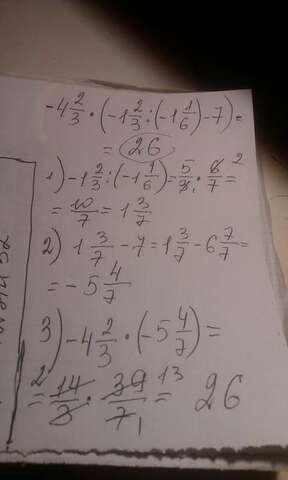 -4 2/3 · (-1 2/3 : (-1 1/6) - 7) =
= 26
1) -1 2/3 : (-1 1/6) = 5/3 · 6/7 2 =
= 10/7 = 1 3/7
2) 1 3/7 - 7 = 1 3/7 - 6 7/7 =
= -5 4/7
3) -4 2/3 · (-5 4/7) =
2 = 14/3 · 39/7 1 = 13 26